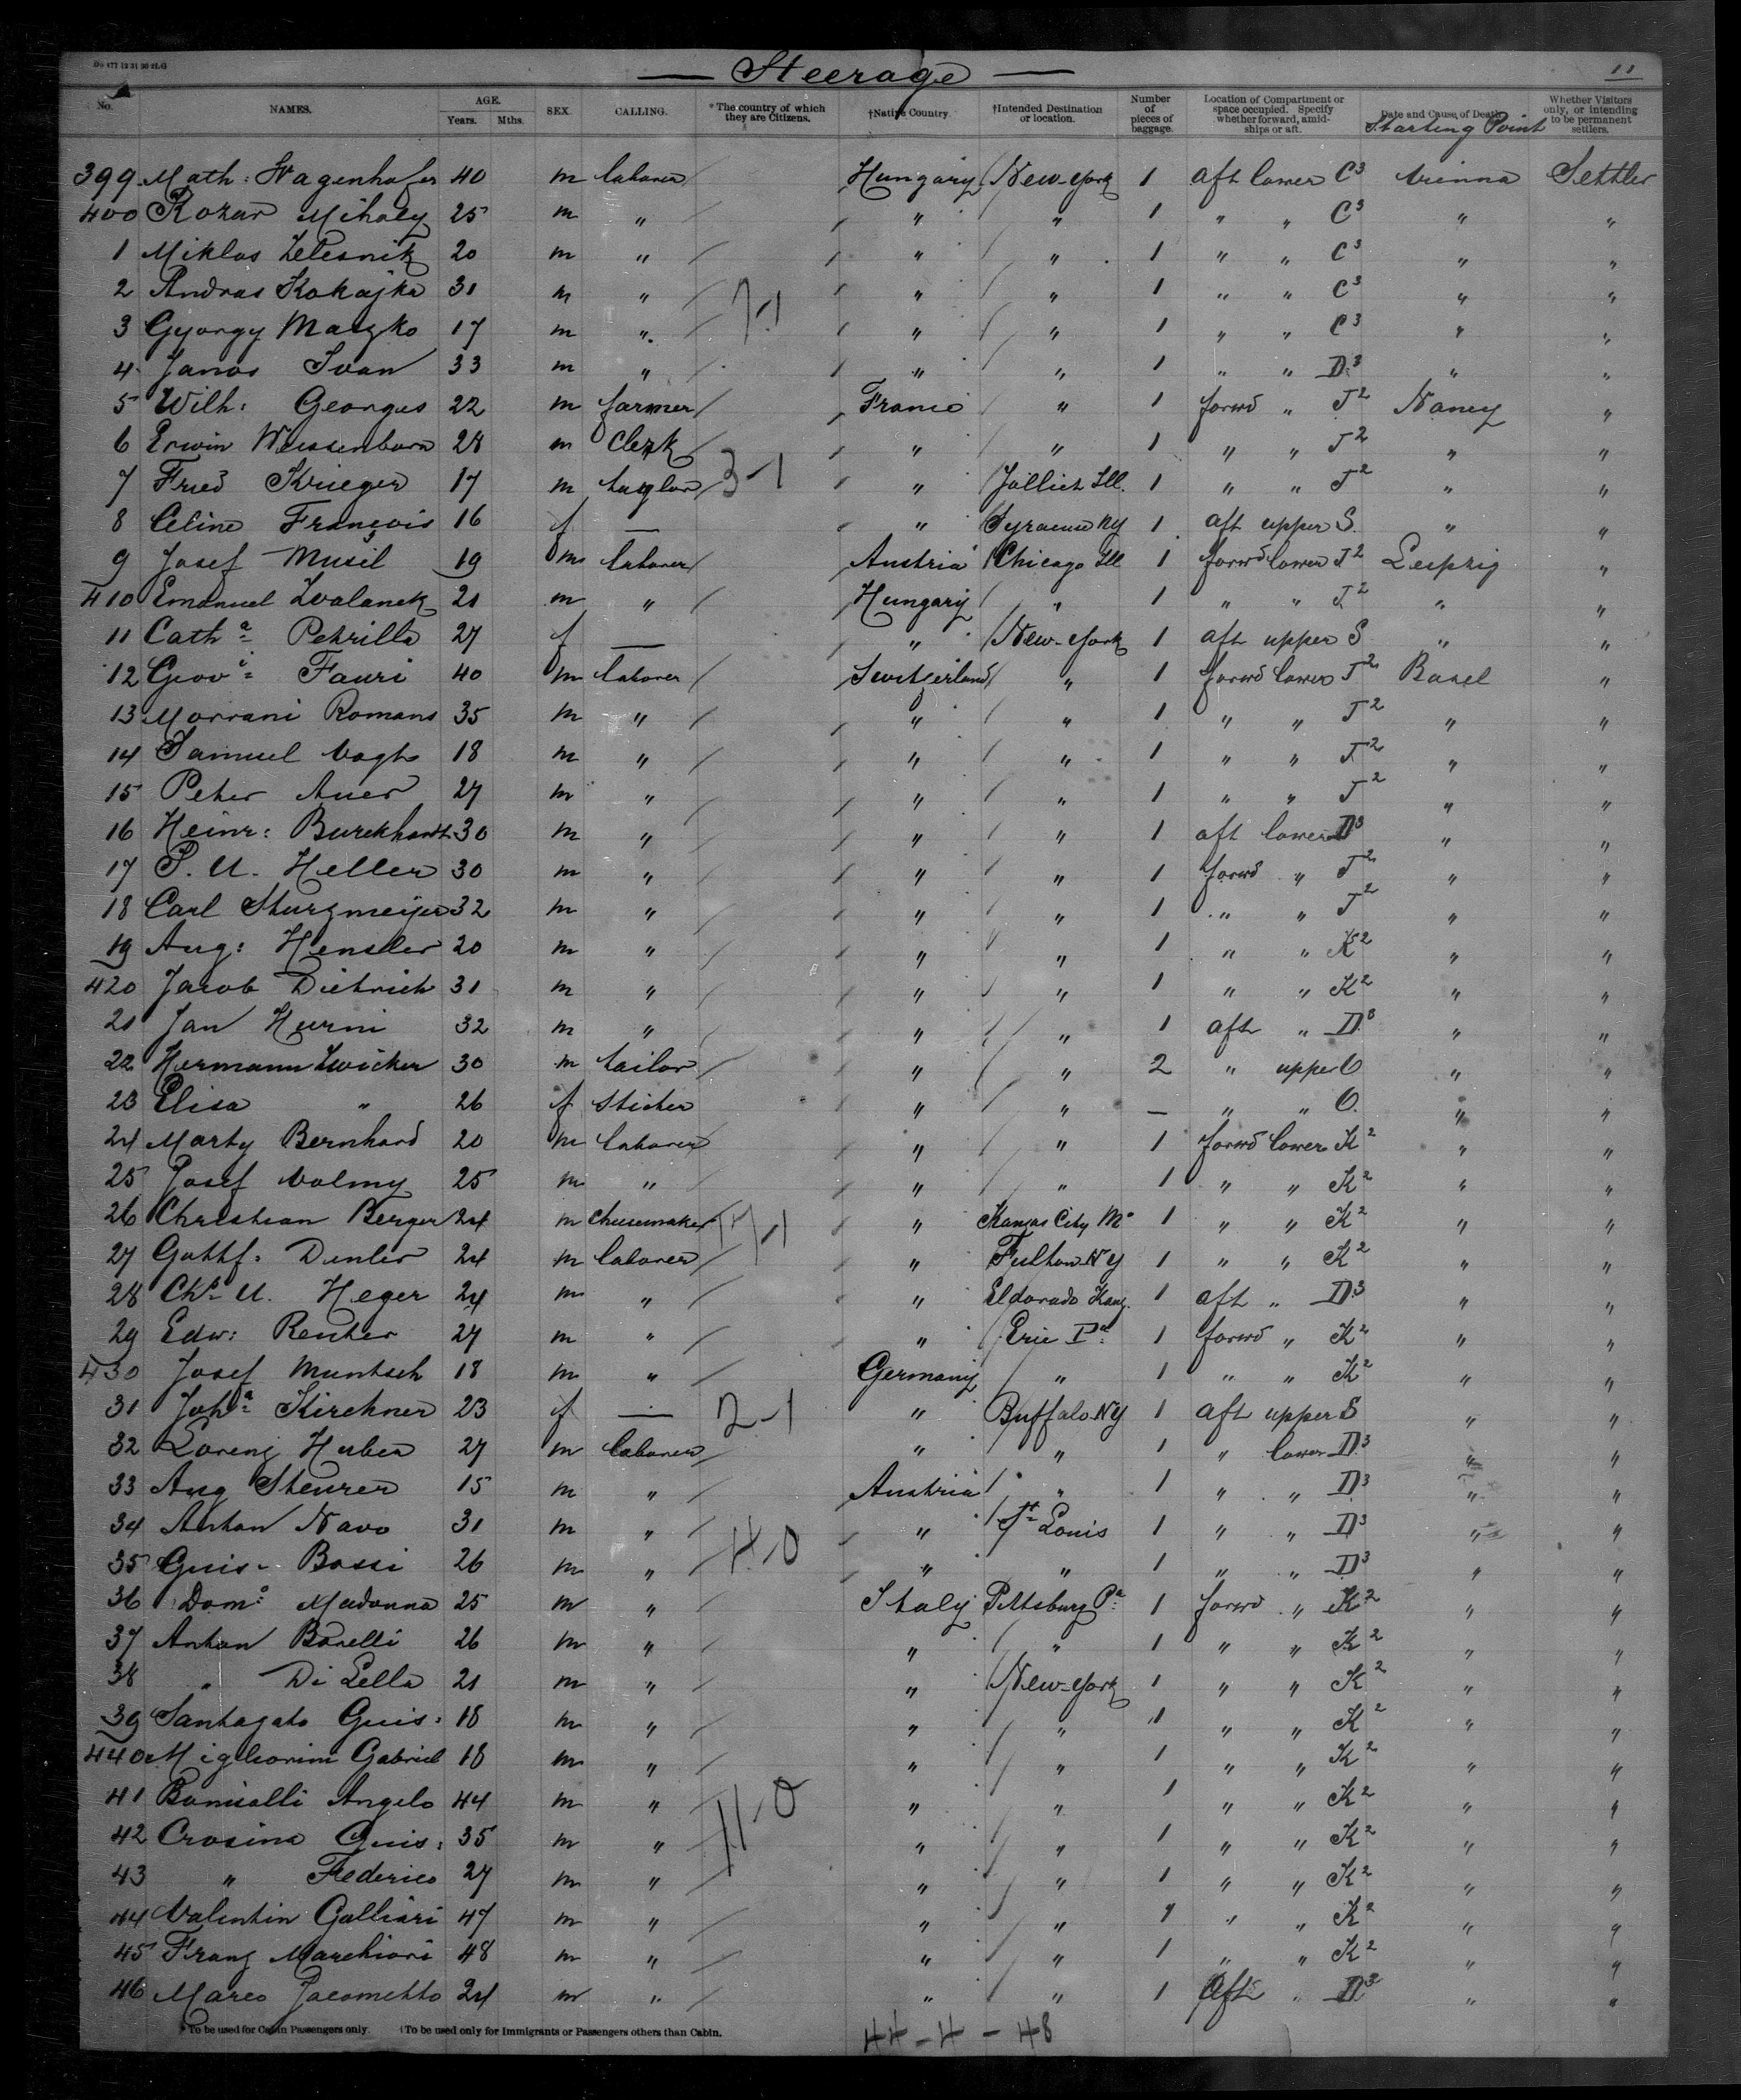 Do 477 12 31 90 21.G
Steerage
11
No. NAMES. AGE. Years. Mths. SEX. CALLING. *The country of which they are Citizens. †Native Country †Intended Destination or location. Number of pieces of baggage. Location of Compartment or space occupied. Specify whether forward, amidships or aft. Date and Cause of Death Starting Point Whether Visitors only, or intending to be permanent settlers.
399 Math: Wagenhofer 40 m laborer Hungary New-York 1 aft lower C3 Vienna Settler
400 Kozar Mihaly 25 m " " " 1 " " C3 " "
1 Miklos Zelesnik 20 m " " " 1 " " C3 " "
2 Andras Kokajka 31 m " 7-1 " " 1 " " C3 " "
3 Gyorgy Maszko 17 m " " " 1 " " C3 " "
4 Janos Ivan 33 m " " " 1 " " D3 " "
5 Wilh: Georges 22 m farmer France " 1 forwd " J2 Nancy "
6 Erwin Weissenborn 28 m Clerk " " 1 " " J2 " "
7 Fried Krieger 17 m taylor 3-1 " Jolliet Ill. 1 " " J2 " "
8 Celine François 16 f — " Syracuse NY 1 aft upper S. " "
9 Josef Musil 19 m laborer Austria Chicago Ill 1 forwd lower J2 Leipzig "
410 Emanuel Zvalanek 21 m " Hungary " 1 " " J2 " "
11 Catha Petrilla 27 f — " New-York 1 aft upper S " "
12 Giovi Fauri 40 m laborer Switzerland " 1 forwd lower J2 Basel "
13 Morrani Romans 35 m " " " 1 " " J2 " "
14 Samuel Vogts 18 m " " " 1 " " J2 " "
15 Peter Auer 27 m " " " 1 " " J2 " "
16 Heinr: Burckhardt 30 m " " " 1 aft lower D3 " "
17 P. U. Heller 30 m " " " 1 forwd " J2 " "
18 Carl Sturzmeijer 32 m " " " 1 " " J2 " "
19 Aug: Hensler 20 m " " " 1 " " K2 " "
420 Jacob Dietrich 31 m " " " 1 " " K2 " "
21 Jan Hurni 32 m " " " 1 aft " D3 " "
22 Hermann Zwicker 30 m tailor " " 2 " upper O " "
23 Elisa " 26 f sticher " " — " " O. " "
24 Marty Bernhard 20 m laborer " " 1 forwd lower K2 " "
25 Josef Volmy 25 m " " " 1 " " K2 " "
26 Christian Berger 24 m cheesemaker " Kansas City Mo 1 " " K2 " "
27 Gottf: Dunler 24 m laborer " Fulton NY 1 " " K2 " "
28 Chr U. Heger 24 m " " Eldorado Kans. 1 aft " D3 " "
29 Edw: Reuter 27 m " " Erie Pa 1 forwd " K2 " "
430 Josef Muntsch 18 m " Germany " 1 " " K2 " "
31 Joha Kirchner 23 f — 2-1 " Buffalo NY 1 aft upper S " "
32 Lorenz Huber 27 m laborer " " 1 " lower D3 " "
33 Aug Steurer 15 m " Austria " 1 " " D3 " "
34 Anton Navo 31 m " 4-0 " St Louis 1 " " D3 " "
35 Guis- Bossi 26 m " " " 1 " " D3 " "
36 Domo Madonna 25 m " Italy Pittsburg Pa 1 forwd " K2 " "
37 Anton Borelli 26 m " " " 1 " " K2 " "
38 " Di Lella 21 m " " New-York 1 " " K2 " "
39 Santagato Guis: 18 m " " " 1 " " K2 " "
440 Migliorini Gabriel 18 m " " " 1 " " K2 " "
41 Bonicalli Angelo 44 m " 11-0 " " 1 " " K2 " "
42 Crosina Guis: 35 m " " " 1 " " K2 " "
43 " Federico 27 m " " " 1 " " K2 " "
44 Valentin Galliari 47 m " " " 1 " " K2 " "
45 Franz Marchiori 48 m " " " 1 " " K2 " "
46 Marco Jacometto 24 m " " " 1 Aft " D3 " "
*To be used for Cabin Passengers only. †To be used only for Immigrants or Passengers others than Cabin.
44-4-48